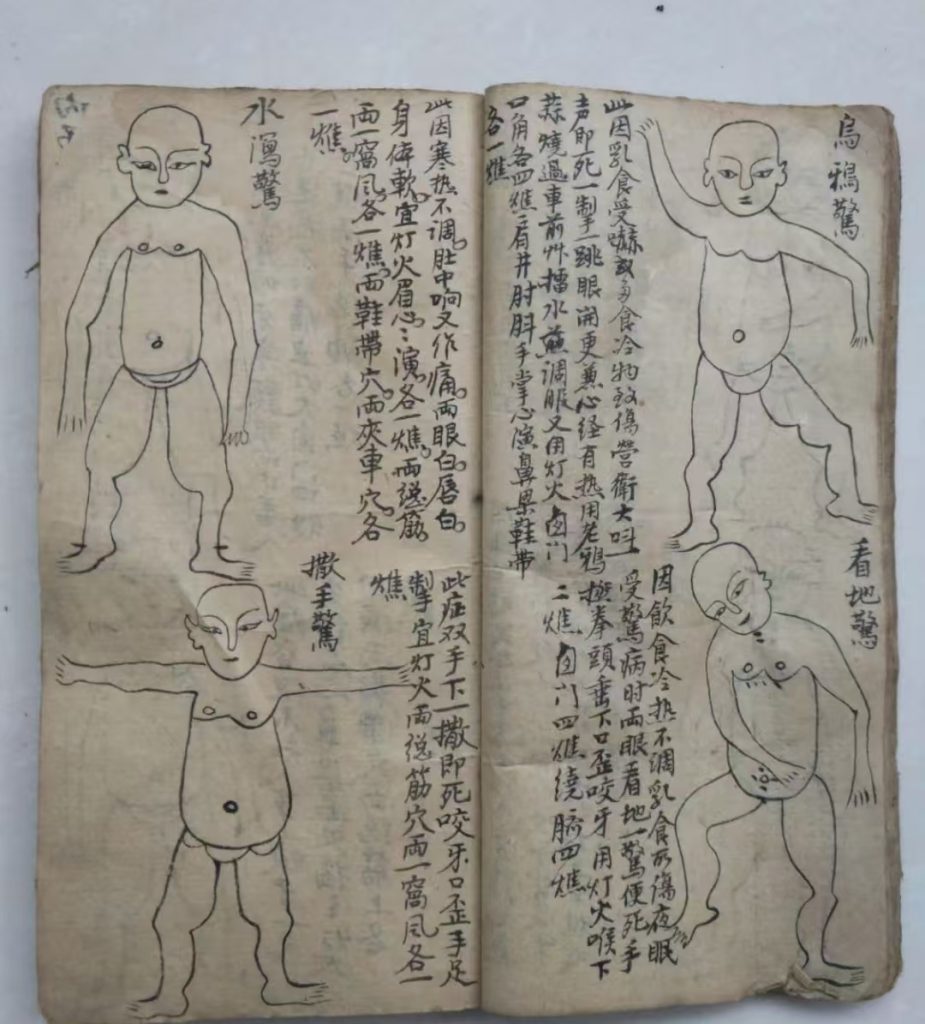 烏鴉驚
此因乳食受嚇或多食冷物致傷营衛大呌
声即死一掣一跳眼闹更兼心経有热用老鴉
蒜燒過車前艸擂水煎調服又用灯火囟门
口角各四燋肩井肘肘手掌心演鼻梁鞋帶
各一燋
看地驚
因飲食冷热不調乳食所傷夜眠
受驚病时两眼看地一驚便死手
拳頭垂下口歪咬牙用灯火喉下
二燋囟门四燋绕脐四燋
水瀉驚
此因寒热不調肚中响又作痛两眼白唇白
身体軟宜灯火眉心心演各一燋两総筋
两一窩风各一燋两鞋帶穴两夾車穴各
一燋
撒手驚
此症双手下一撒即死咬牙口歪手足
掣宜灯火两総筋穴两一窩风各一
燋